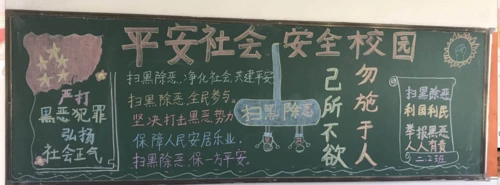 平安社会 安全校园
严打
黑恶犯罪
弘扬
社会正气
扫黑除恶,净化社会,共建平安
扫黑除恶,全民参与。
坚决打击黑恶势力
保障人民安居乐业,
扫黑除恶,保一方平安.
扫黑除恶
己所不欲
勿施于人
扫黑除恶
利国利民
举报黑恶
人人有责
二.2班